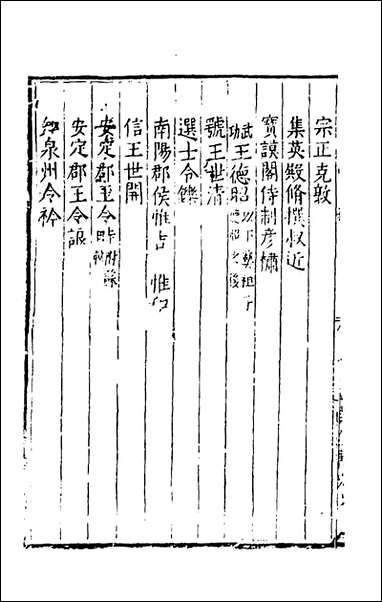 宗正克敦
集英殿脩撰叔近
寶謨閣侍制彦橚
武功王德昭以下藝祖子德昭之後
號王世清
選士令鑠
南陽郡侯惟吉 惟和
信王世開
安定郡王令 附錄
安定郡王令詪
知泉州令衿